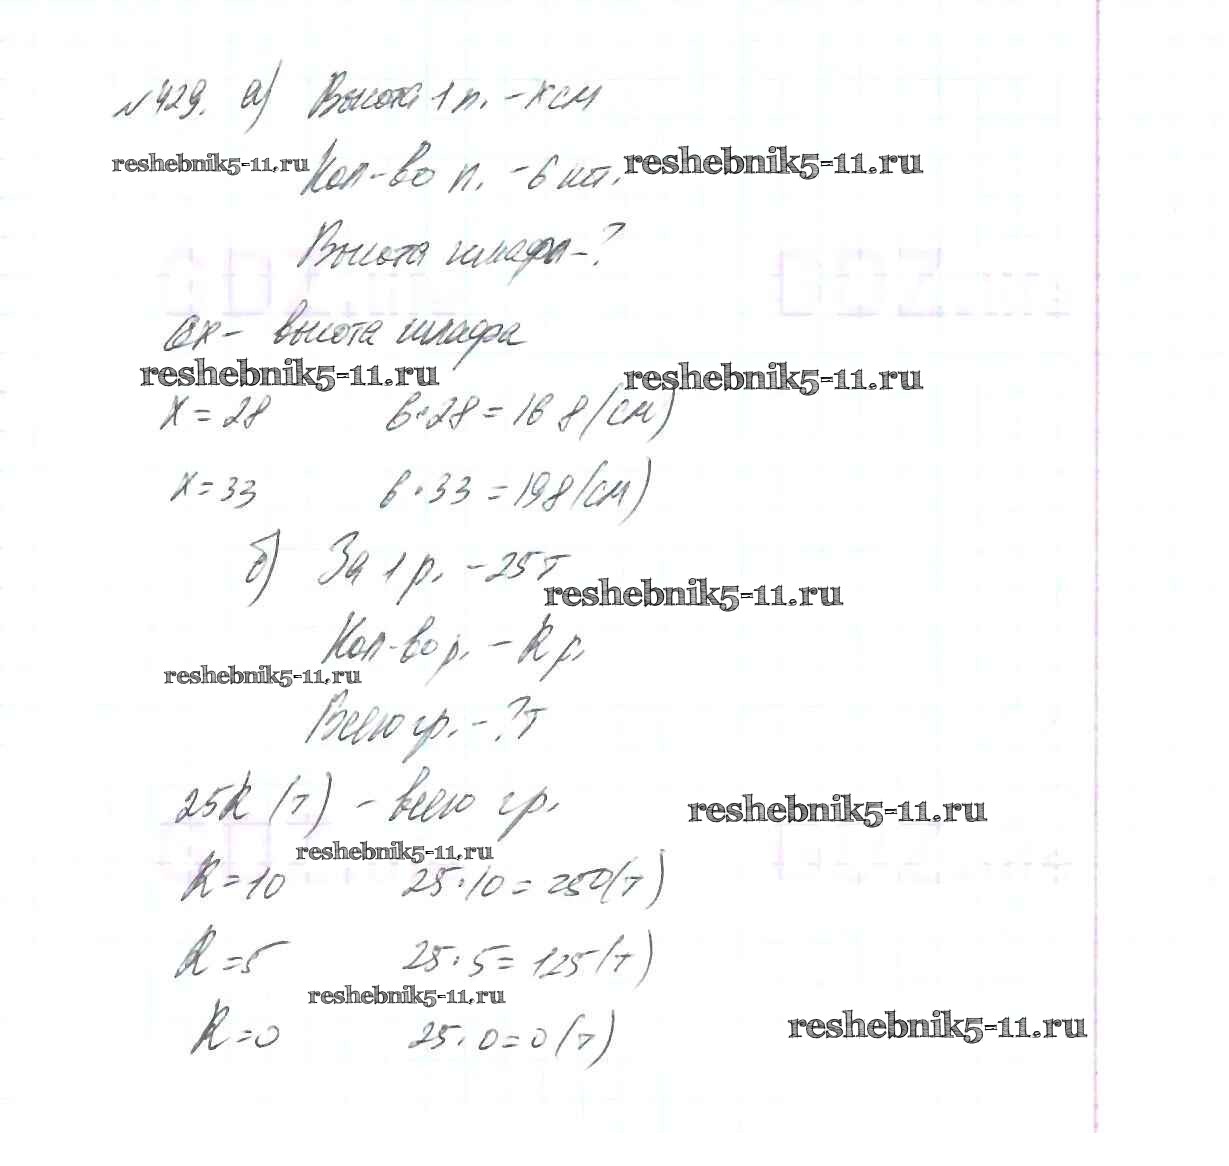 №429. а) Высота 1 п. - x см
reshebnik5-11.ru Кол-во п. - 6 шт. reshebnik5-11.ru
Высота шкафа - ?
6x - высота шкафа
reshebnik5-11.ru reshebnik5-11.ru
x = 28 6·28 = 168 (см)
x = 33 6·33 = 198 (см)
б) За 1 р. - 25 т
reshebnik5-11.ru
Кол-во р. - k р.
reshebnik5-11.ru
Всего гр. - ? т
25k (т) - всего гр. reshebnik5-11.ru
reshebnik5-11.ru
k = 10 25·10 = 250 (т)
k = 5 25·5 = 125 (т)
reshebnik5-11.ru
k = 0 25·0 = 0 (т) reshebnik5-11.ru